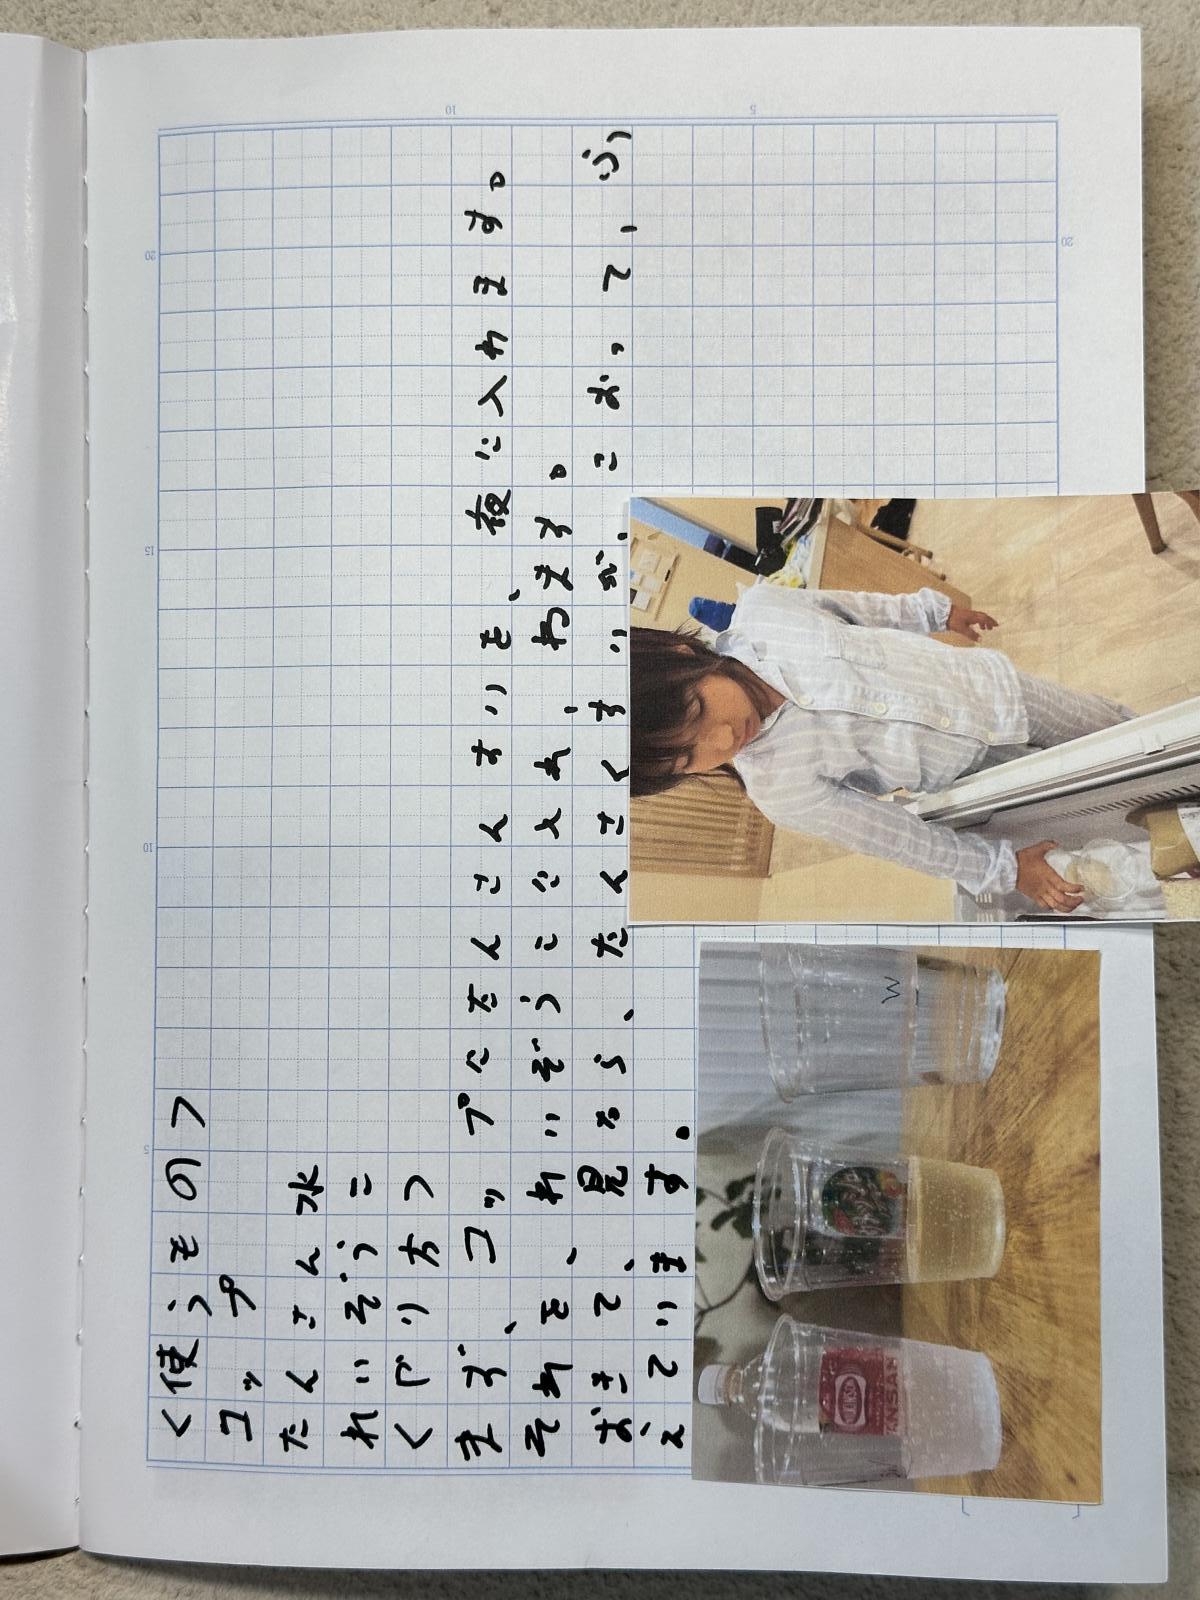 〈使うもの〉
コップ
たんさん水
れいぞうこ
〈やり方〉
まず、コップにたんさんすいを、夜に入れます。
それを、れいぞうこに入れ、れます。
おきて、見たら、たんさんすいが、こおって、ふ
えています。
5
10
15
20
5
10
20
W
TANSAN